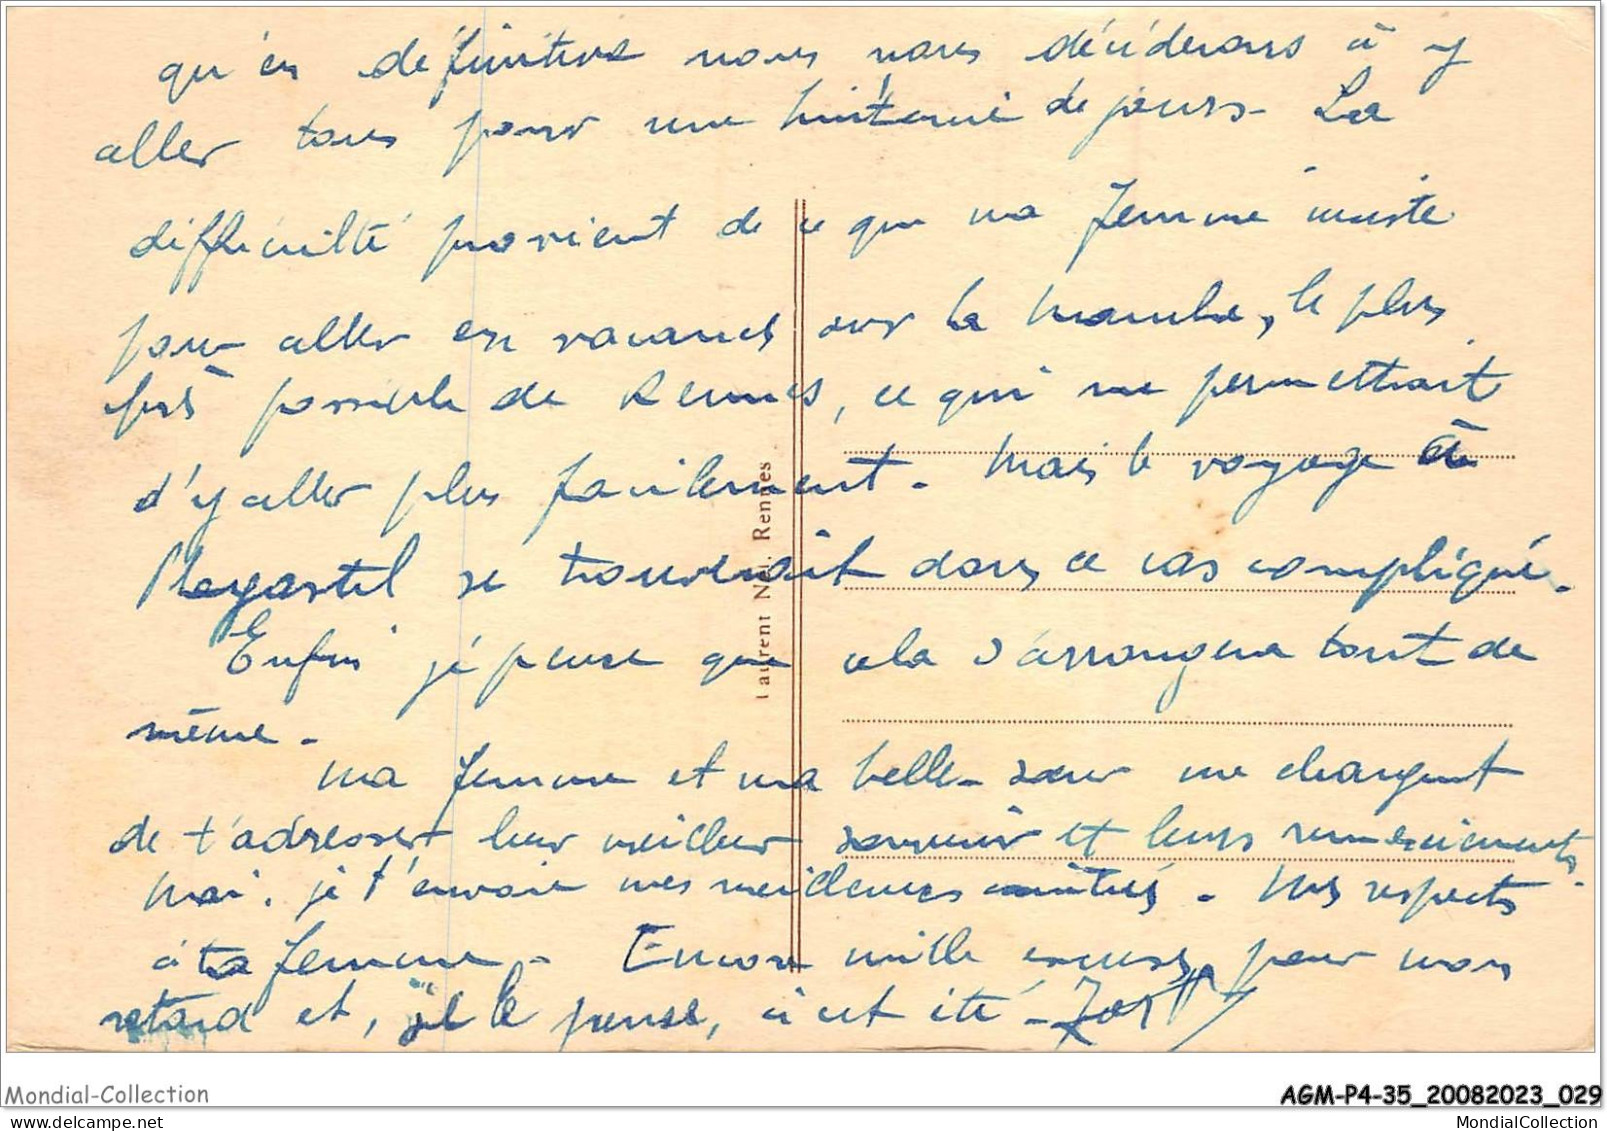 qu'en définitive nous nous déciderons à y
aller tous pour une huitaine de jours - La
difficulté provient de ce que ma femme insiste
pour aller en vacances sur la Manche, le plus
près possible de Rennes, ce qui me permettrait
d'y aller plus facilement. Mais le voyage à
Plegastel se trouverait dans ce cas compliqué.
Enfin je pense que cela s'arrangera tout de
même.
Ma femme et ma belle-soeur me chargent
de t'adresser leur meilleur souvenir et leurs remerciements.
Moi, je t'envoie mes meilleures amitiés. Mes respects
à ta femme. Encore mille excuses pour mon
retard et, je le pense, à cet été -
Laurent Nel. Rennes
Mondial-Collection
AGM-P4-35_20082023_029
MondialCollection